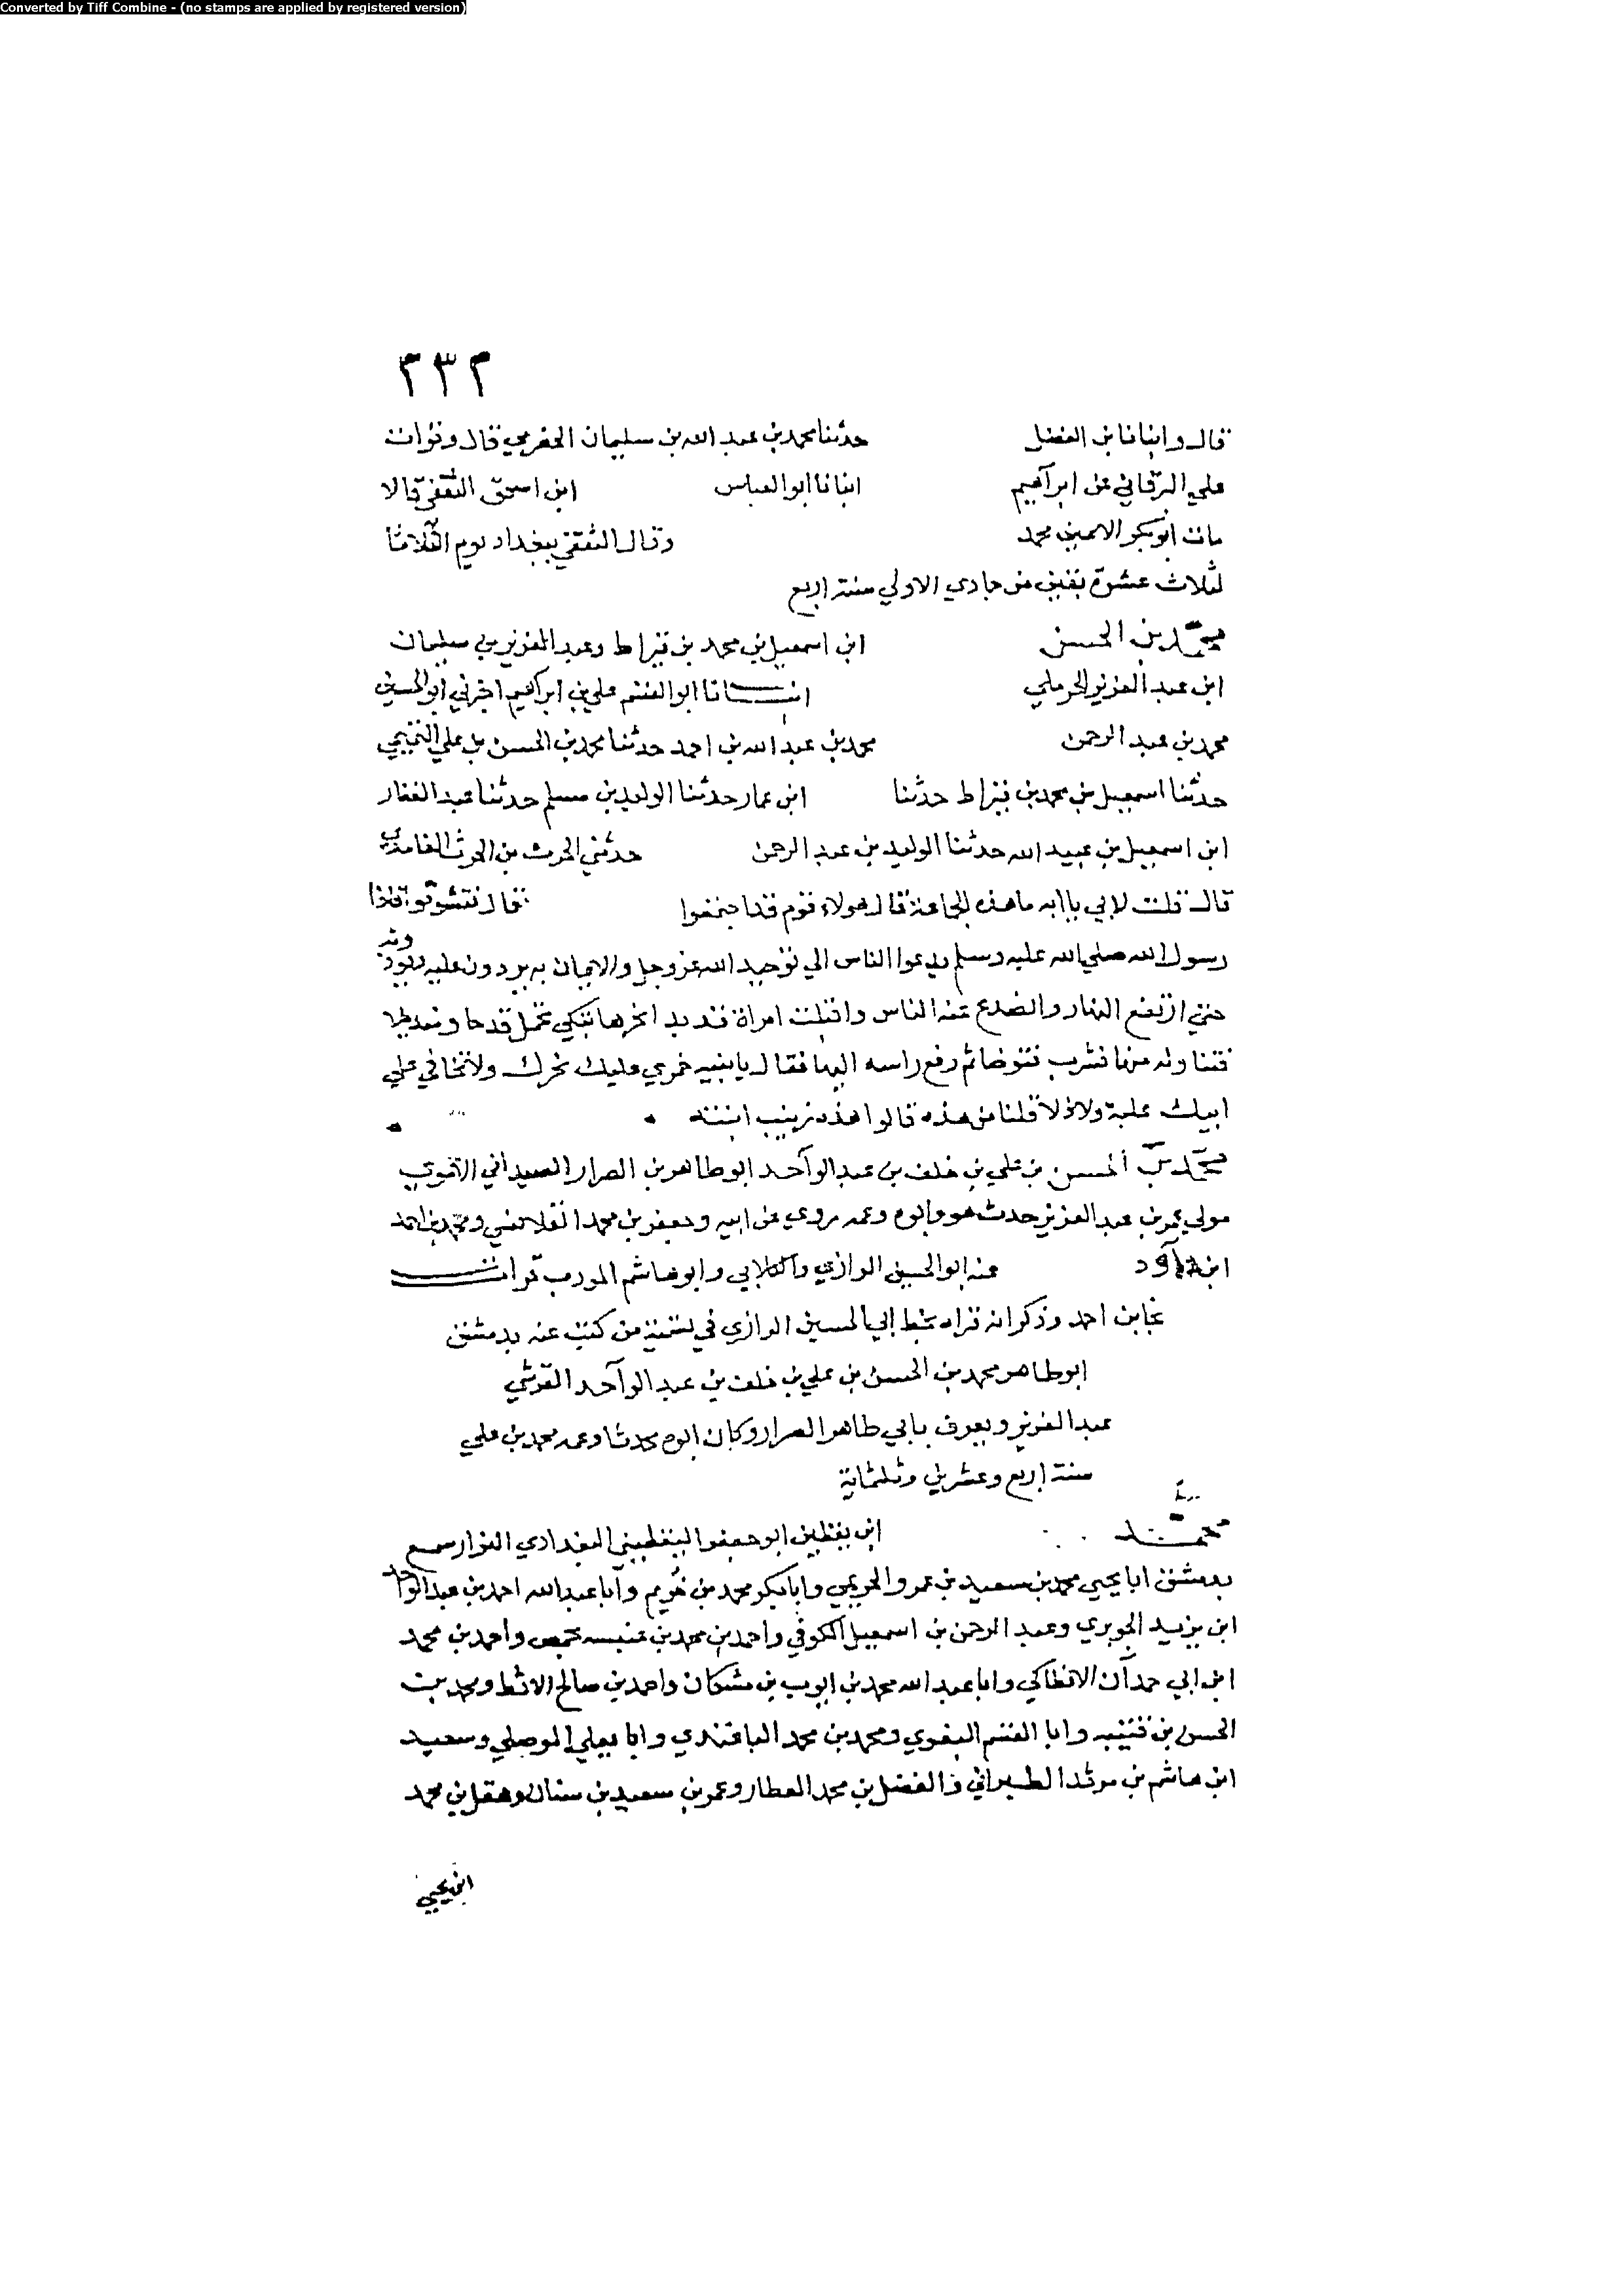 Converted by Tiff Combine - (no stamps are applied by registered version)
٢٣٢
قال وانبانا بن الفضل حدثنا محمد بن عبد الله بن سليمان الحضرمي قال وقرات
علي البرقاني عن ابراهيم انبانا ابو العباس ابن اسحق الثقفي قالا
مات ابو بكر الامين محمد وقال الثقفي ببغداد يوم الثلاثا
لثلاث عشرة بقين من جمادي الاولي سنة اربع
محمد بن الحسن ابن اسمعيل بن محمد بن قيراط وعبد العزيز بن سليمان
ابن عبد العزيز الحرملي انبانا ابو القسم علي بن ابراهيم اخبرني ابو الحسن
محمد بن عبد الرحمن محمد بن عبد الله بن احمد حدثنا محمد بن الحسن بن علي التميمي
حدثنا اسمعيل بن محمد بن قيراط حدثنا ابن عمار حدثنا الوليد بن مسلم حدثنا عبد الغفار
ابن اسمعيل بن عبيد الله حدثنا الوليد بن عبد الرحمن حدثني الحرث بن الحرث الغامدي
قال قلت لابي يا ابه ما هذه الجماعة قال هولاء قوم قد اجتمعوا قال فتشوقوا فاذا
رسول الله صلي الله عليه وسلم يدعوا الناس الي توحيد الله عز وجل والايمان به يردون عليه
حتي ارتفع النهار وانصدع عنه الناس واقبلت امراة قد بدا نحرها تبكي تحمل قدحا ومنديلا
فتناوله منها فشرب فتوضا ثم رفع راسه اليها فقال يا بنيه خمري عليك نحرك ولا تخافي علي
ابيك غلبة ولا ذلا قلنا من هذه قالوا هذه زينب ابنته
محمد بن الحسن بن علي بن خلف بن عبد الواحد ابو طاهر بن الصرار الصيداني الاموي
مولي عمر بن عبد العزيز حدث هو وابوه وعمه روي عن ابيه وجعفر بن محمد القلانسي ومحمد بن احمد
ابن داود عنه ابو الحسين الرازي والكلابي وابو هاشم المودب قرات
نجا بن احمد وذكر انه قراه بخط ابي الحسين الرازي في تسمية من كتب عنه بدمشق
ابو طاهر محمد بن الحسن بن علي بن خلف بن عبد الواحد القرشي
عبد العزيز ويعرف بابي طاهر الصرار وكان ابوه محدثا وعمه محمد بن علي
سنة اربع وعشرين وثلثماية
محمد ابن يقطين ابو جعفر اليقطيني البغدادي البزار سمع
بدمشق ابا يحيي محمد بن سعيد بن عمرو الخريمي وابا بكر محمد بن خريم وابا عبد الله احمد بن عبد الواحد
ابن يزيد الجوبري وعبد الرحمن بن اسمعيل الكوفي واحمد بن محمد بن عنبسه بحمص واحمد بن محمد
ابن ابي حمدان الانطاكي وابا عبد الله محمد بن ايوب بن مشكان واحمد بن صالح ومحمد بن
الحسن بن قتيبه وابا القسم البغوي ومحمد بن محمد الباغندي وابا يعلي الموصلي وسعيد
ابن هاشم بن مرثد الطبراني والفضل بن محمد العطار وعمر بن سعيد بن سنان وهقل بن محمد
ابن يحيي